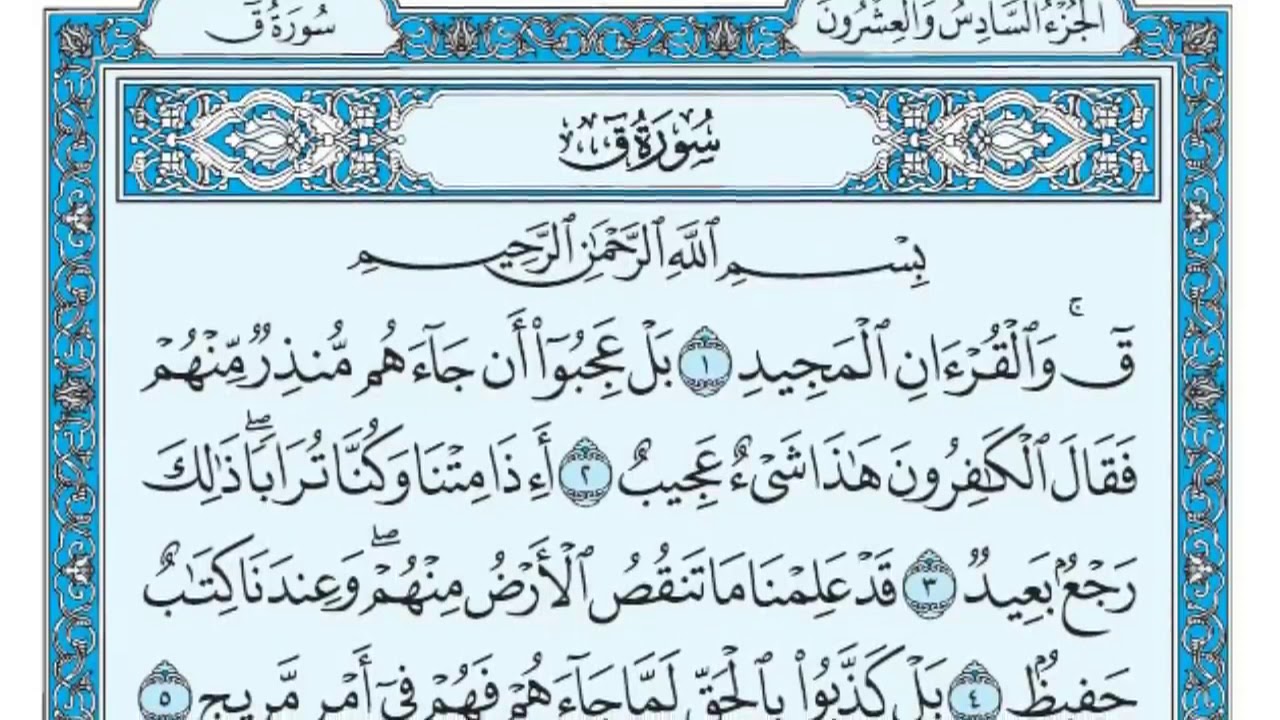 الجزء السادس والعشرون
سورة ق
سُورَةُ قٓ
بِسْمِ ٱللَّهِ ٱلرَّحْمَٰنِ ٱلرَّحِيمِ
قٓۚ وَٱلْقُرْءَانِ ٱلْمَجِيدِ ١ بَلْ عَجِبُوٓا۟ أَن جَآءَهُم مُّنذِرٌ مِّنْهُمْ
فَقَالَ ٱلْكَٰفِرُونَ هَٰذَا شَىْءٌ عَجِيبٌ ٢ أَءِذَا مِتْنَا وَكُنَّا تُرَابًاۖ ذَٰلِكَ
رَجْعٌۢ بَعِيدٌ ٣ قَدْ عَلِمْنَا مَا تَنقُصُ ٱلْأَرْضُ مِنْهُمْۖ وَعِندَنَا كِتَٰبٌ
حَفِيظٌۢ ٤ بَلْ كَذَّبُوا۟ بِٱلْحَقِّ لَمَّا جَآءَهُمْ فَهُمْ فِىٓ أَمْرٍ مَّرِيجٍ ٥